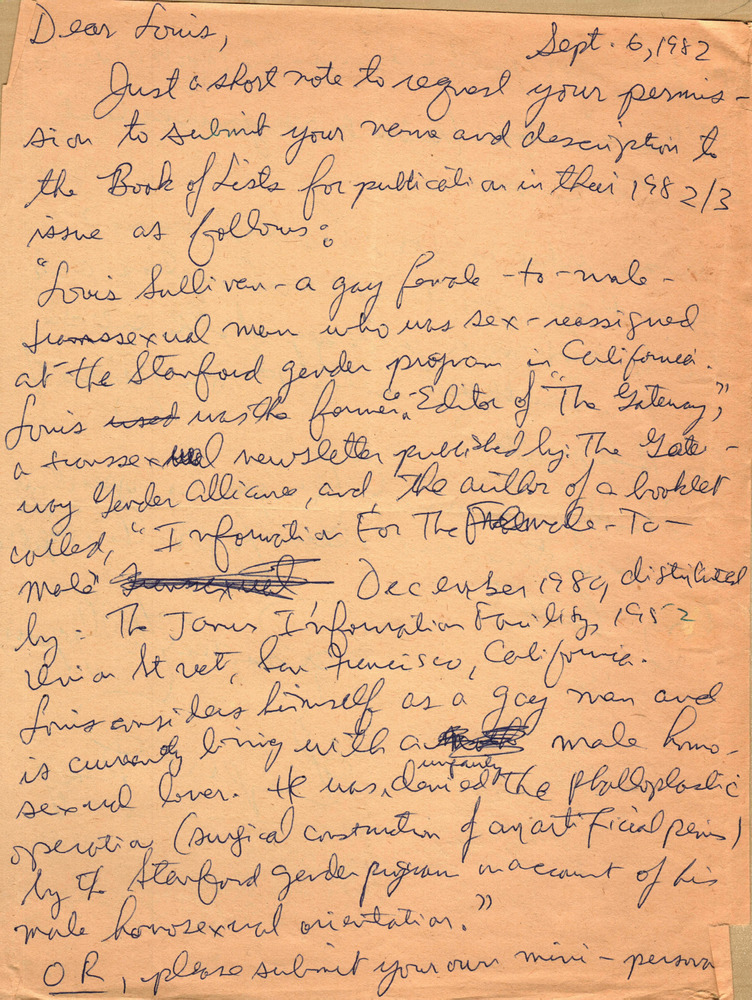 Dear Louis,
Sept. 6, 1982
Just a short note to request your permis-
sion to submit your name and description to
the Book of Lists for publication in their 1982/3
issue as follows:
"Louis Sullivan - a gay female-to-male-
transsexual man who was sex-reassigned
at the Stanford gender program in California.
Louis used was the former Editor of "The Gateway,"
a transsexual newsletter published by: The Gate-
way Gender Alliance, and the author of a booklet
called, "Information For The Female-To-
male" transsexual December 1980, distributed
by: The Janus Information Facility, 1952
Union Street, San Francisco, California.
Louis considers himself as a gay man and
is currently living with a male homo-
unfairly
sexual lover. He was denied the phalloplastic
operation (surgical construction of an artificial penis)
by the Stanford gender program on account of his
male homosexual orientation."
OR, please submit your own mini-persona